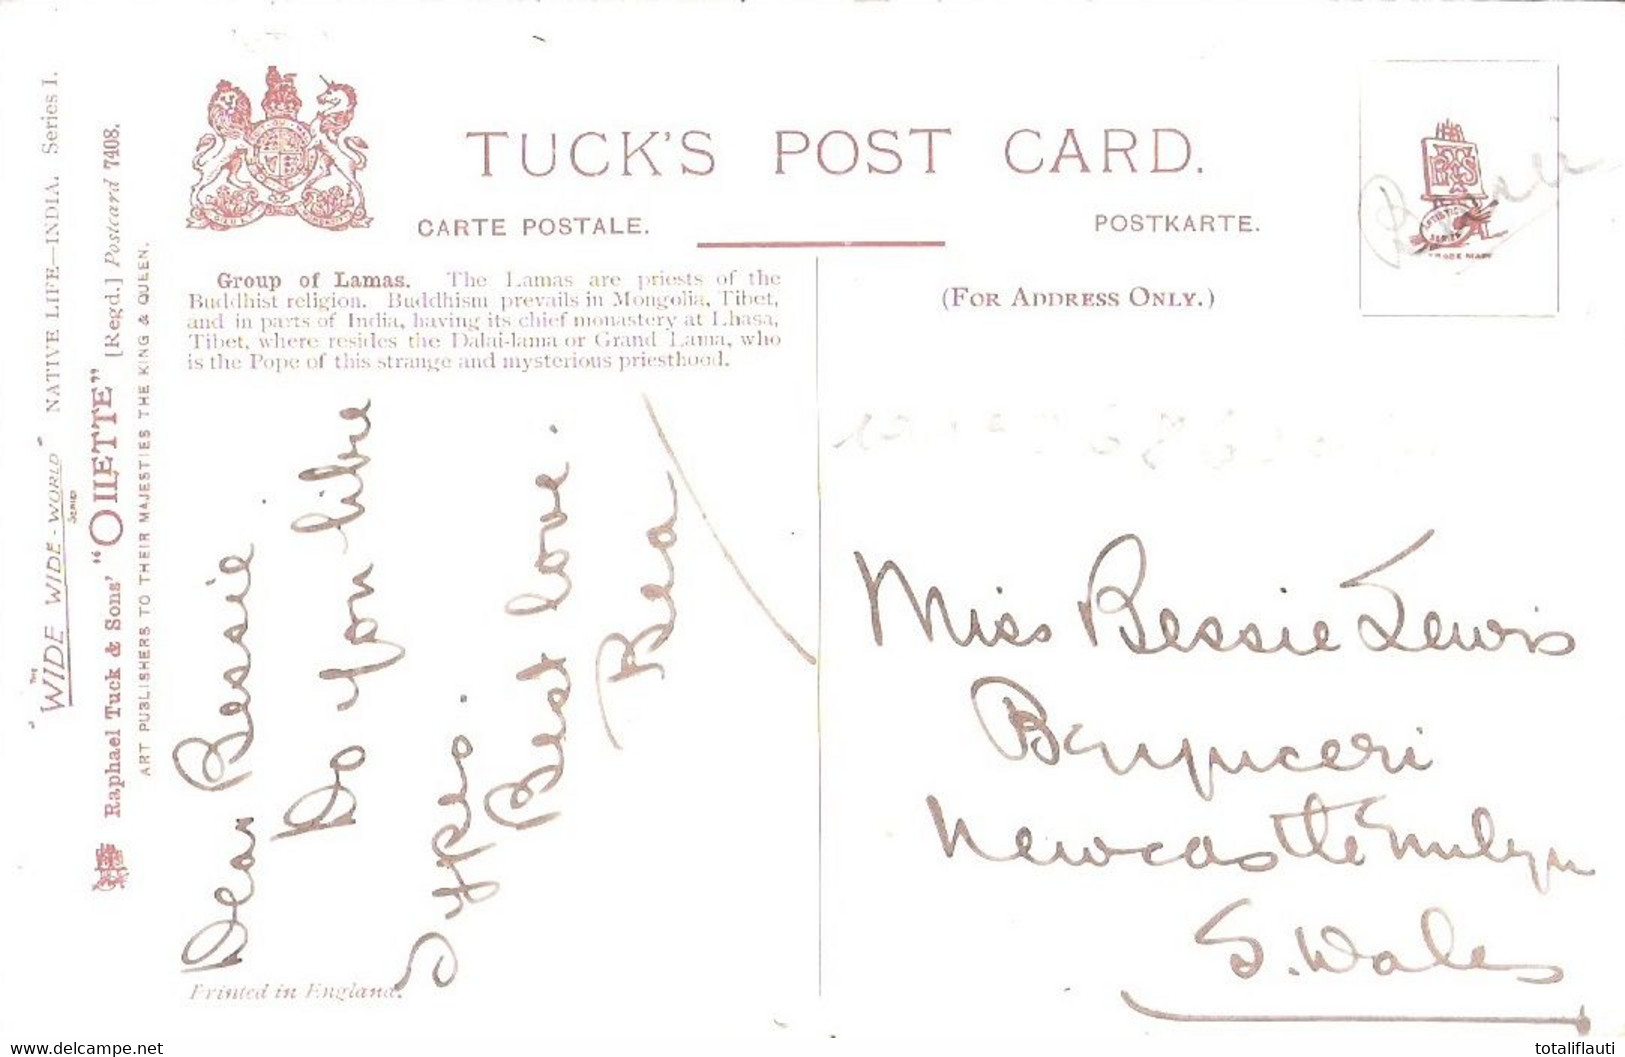 TUCK'S POST CARD.
CARTE POSTALE.
POSTKARTE.
(FOR ADDRESS ONLY.)
Group of Lamas. The Lamas are priests of the
Buddhist religion. Buddhism prevails in Mongolia, Tibet,
and in parts of India, having its chief monastery at Lhasa,
Tibet, where resides the Dalai-lama or Grand Lama, who
is the Pope of this strange and mysterious priesthood.
"THE WIDE-WIDE-WORLD" SERIES NATIVE LIFE—INDIA. Series I.
Raphael Tuck & Sons' "OILETTE" [Regd.] Postcard 7408.
ART PUBLISHERS TO THEIR MAJESTIES THE KING & QUEEN.
Dear Bessie
Do you like
types.
Best love.
Miss Bessie Lewis
Newcastle Emlyn
S. Wales
Printed in England.
ARTISTIC SERIES
TRADE MARK
www.delcampe.net
totaliflauti